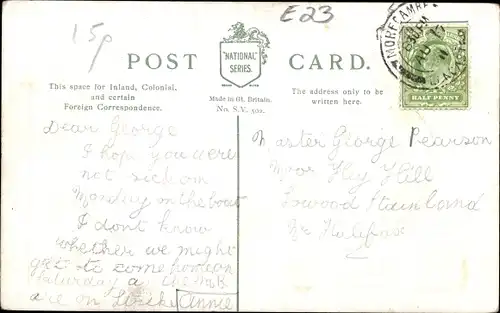 15p
E23
MORECAMBE
"NATIONAL"
SERIES.
POST CARD.
HALF PENNY
This space for Inland, Colonial,
and certain
Foreign Correspondence.
Made in Gt. Britain.
No. S.V. 502.
The address only to be
written here.
Dear George
I hope you were
not sick on
Monday on the boat
I dont know
whether we might
get to come home on
Saturday a
are on strike Annie
Master George Pearson
Moor Hey Hill
Lowood Stainland
Nr Halifax